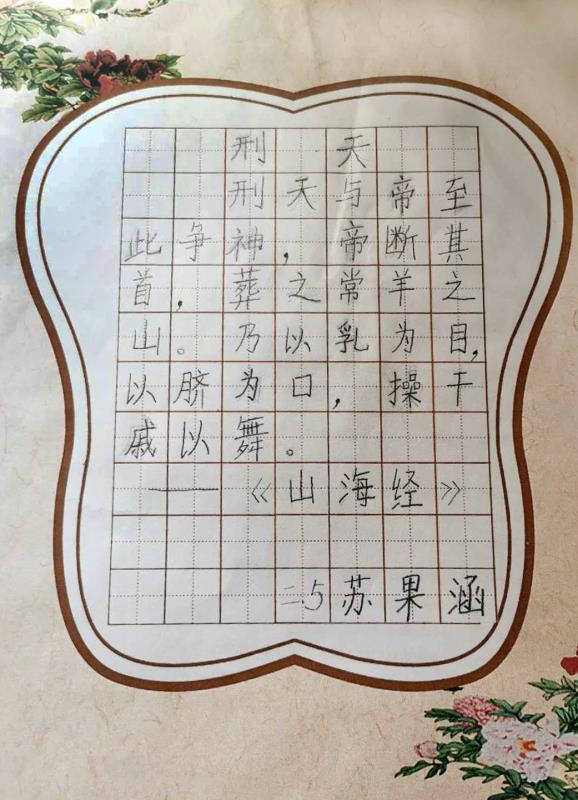 刑天
刑天与帝至
此争神，帝断其
首，葬之常羊之
山。乃以乳为目，
以脐为口，操干
戚以舞。
——《山海经》
二.5苏果涵